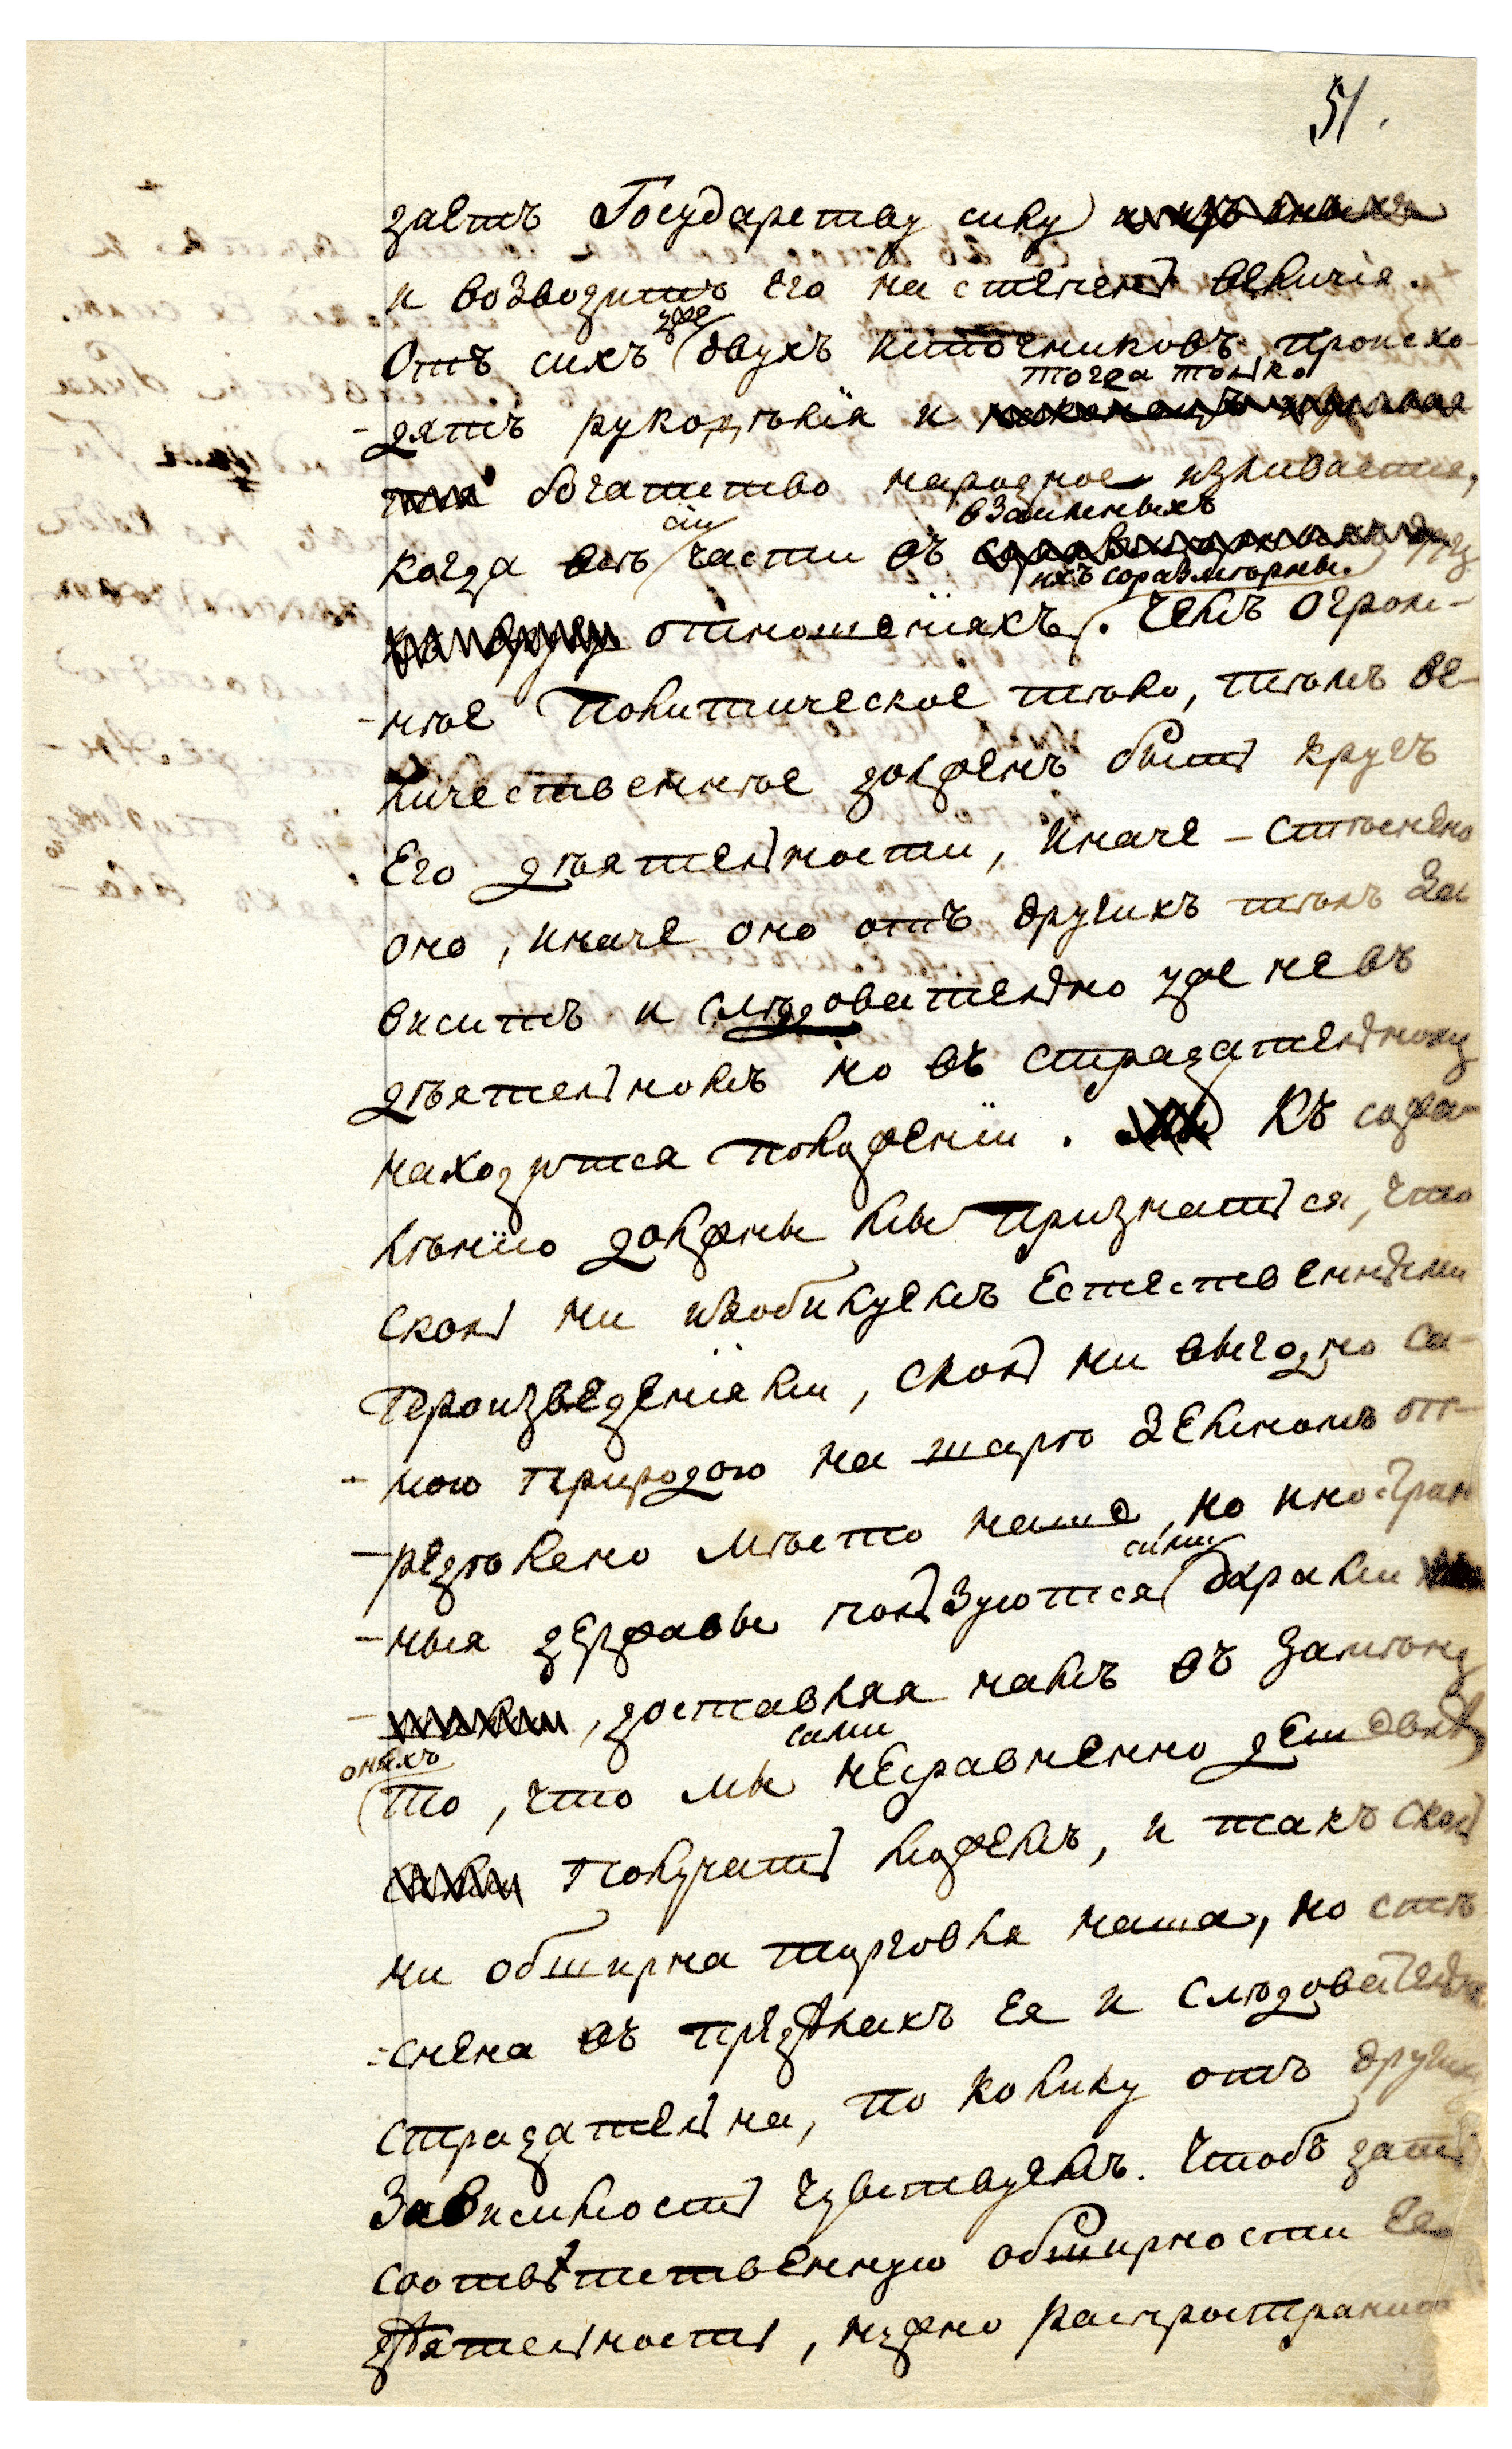 51.
даетъ Государству силу
и возводитъ Его на степень величія.
же
Отъ сихъ двухъ источниковъ происхо-
тогда только
-дятъ рукодѣлія и
богатство народное изливается,
сіи взаимныхъ
когда всѣ части въ
ихъ соразмѣрны.
отношеніяхъ. Чемъ огром-
-нѣе Политическое тѣло, тѣмъ ве-
личественнѣе долженъ быть кругъ
Его дѣятельности, иначе - стѣснено
оно, иначе оно отъ другихъ тѣлъ за
виситъ и слѣдовательно уже не въ
дѣятельномъ но въ страдательному
находится положеніи. Къ сожа-
лѣнію должны мы признаться, что
сколь ни изобилуемъ Естественными
произведеніями, сколь ни выгодно са-
-мою природою на шарѣ Земномъ оп-
-редѣлено мѣсто наше, но иностран
сими
-ныя державы пользуются дарами
, доставляя намъ въ замѣну
оныхъ сами
то, что мы несравненно дешевлѣ
получать можемъ, и такъ сколь
ни обширна торговля наша, но стѣ
-снена въ предѣлахъ Ея и слѣдовательно
страдательна, по колику отъ другихъ
Зависимость чувствуемъ. Чтобъ дать
соотвѣтственную обширности Ея
дѣятельность, нужно распространить